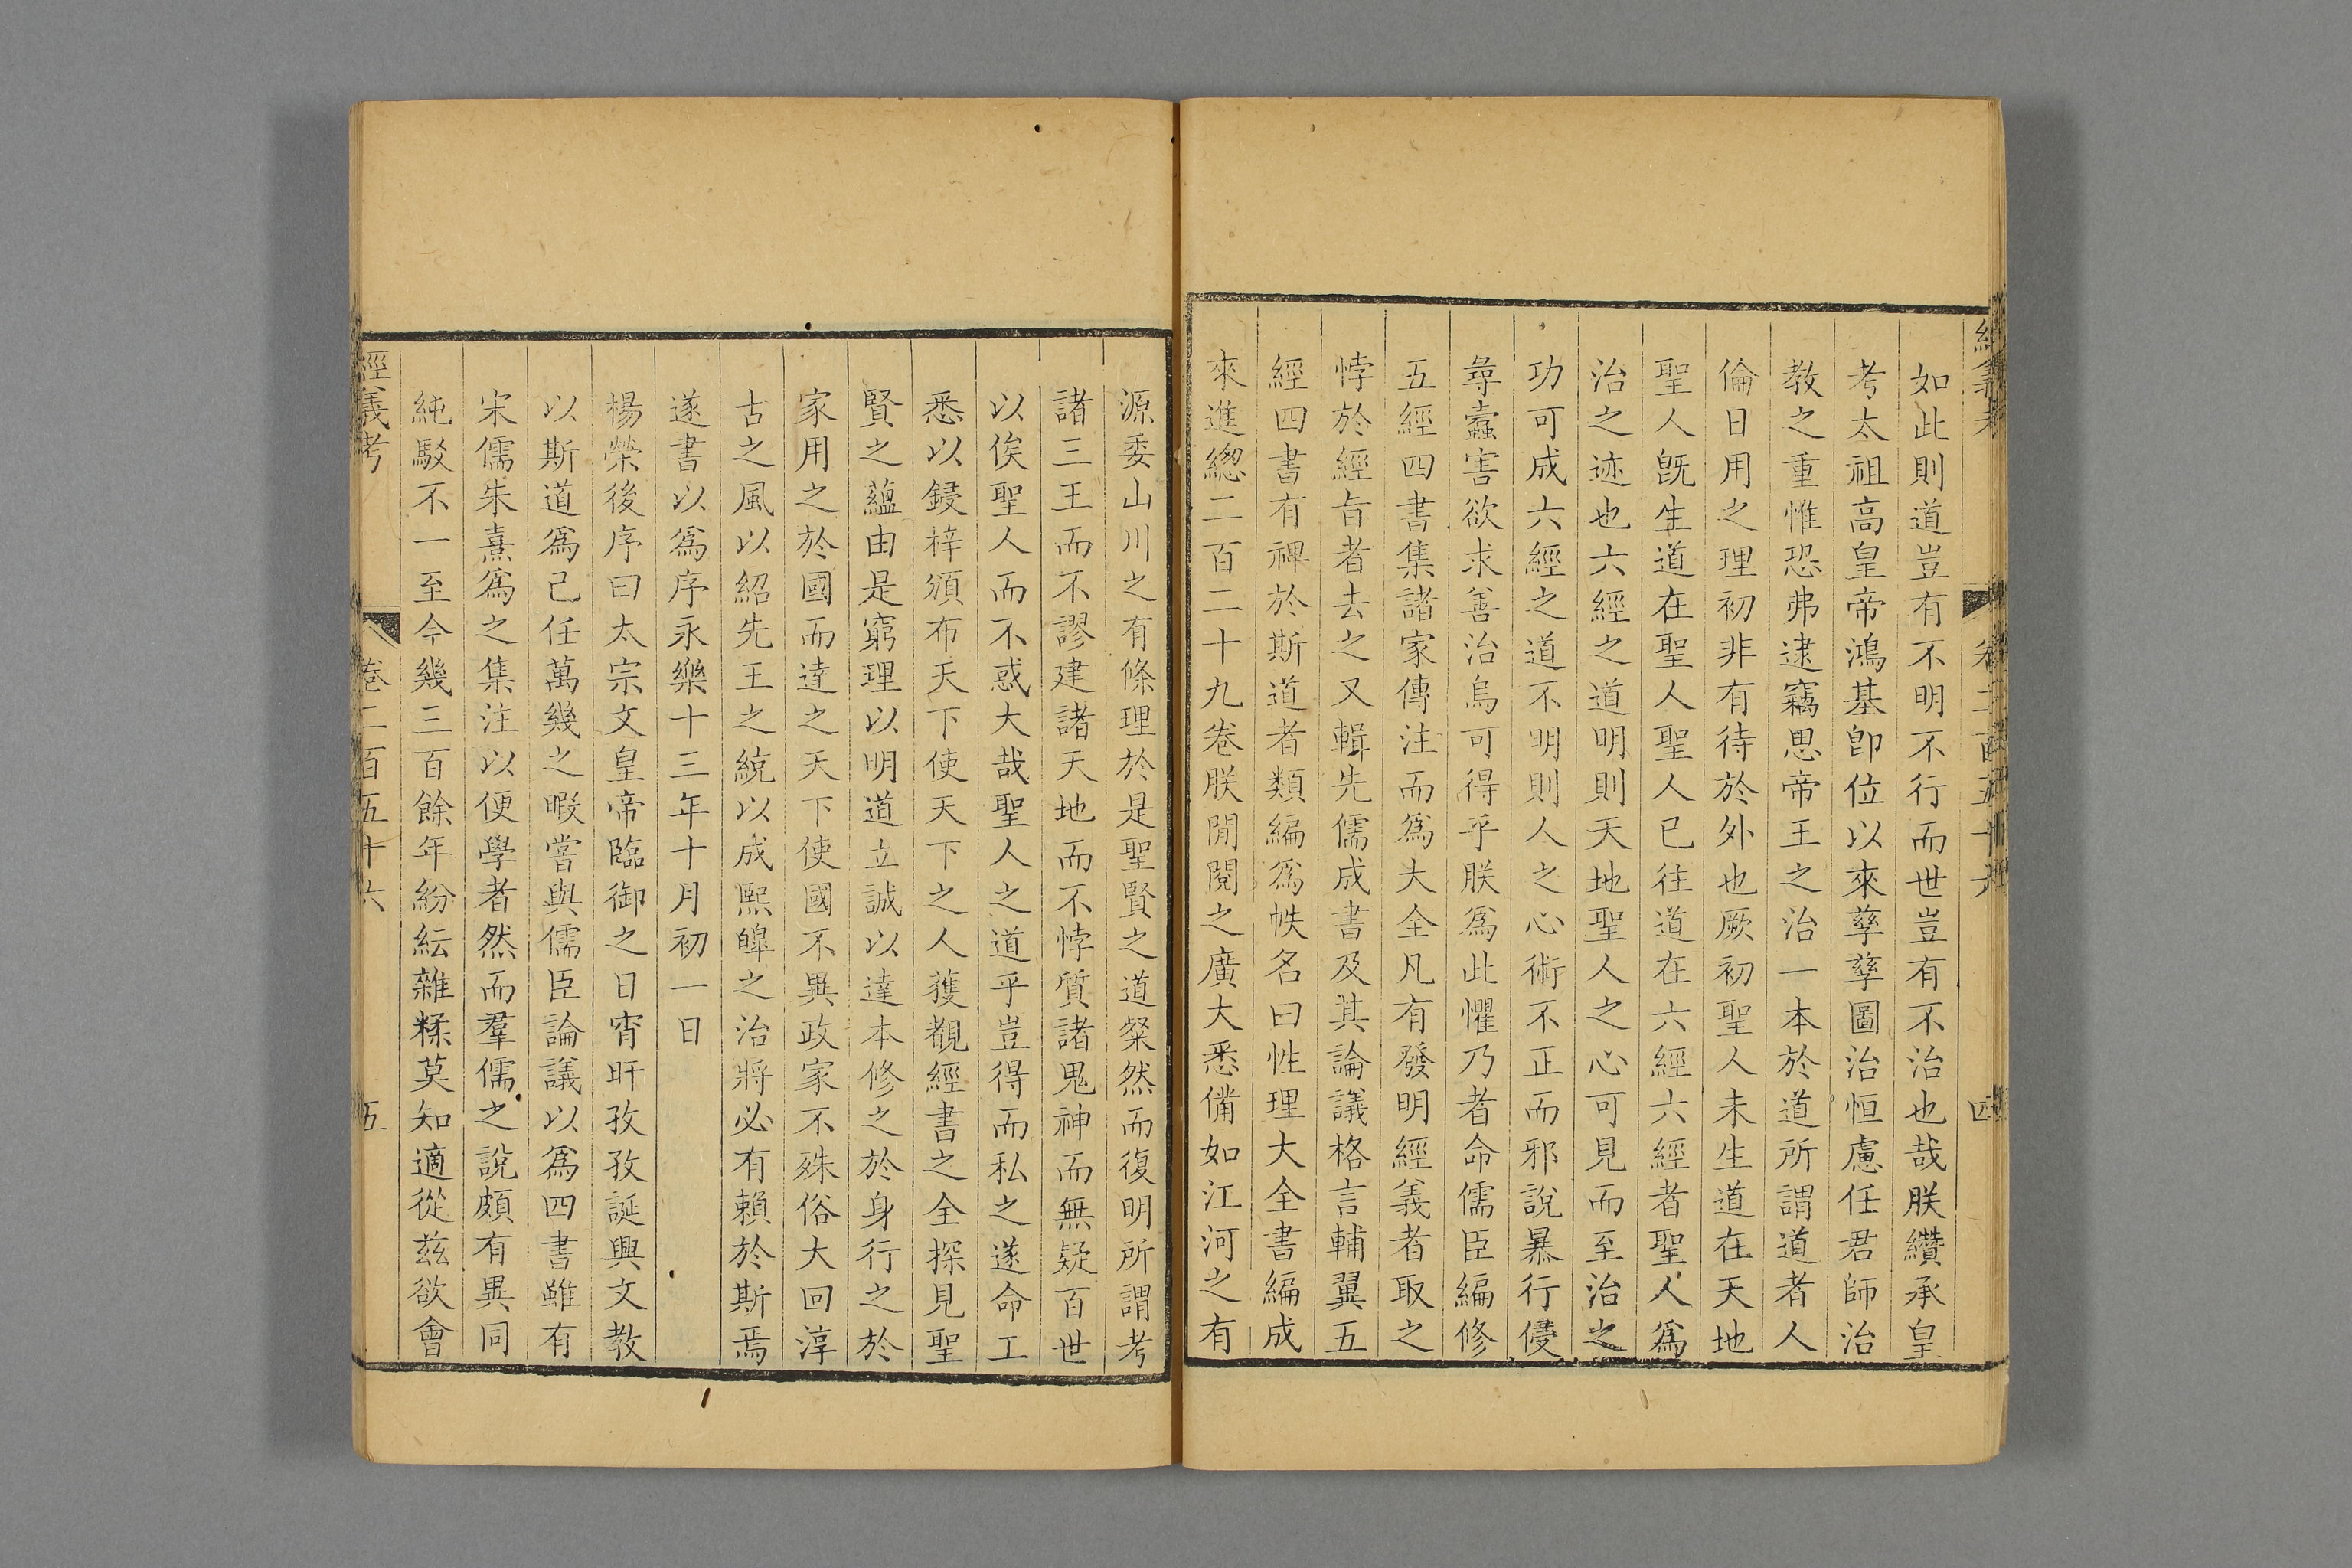 經義考 卷二百五十六 四
如此則道豈有不明不行而世豈有不治也哉朕纘承皇
考太祖高皇帝鴻基卽位以來孳孳圖治恒慮任君師治
教之重惟恐弗逮竊思帝王之治一本於道所謂道者人
倫日用之理初非有待於外也厥初聖人未生道在天地
聖人旣生道在聖人聖人已往道在六經六經者聖人爲
治之迹也六經之道明則天地聖人之心可見而至治之
功可成六經之道不明則人之心術不正而邪說暴行侵
尋蠧害欲求善治烏可得乎朕爲此懼乃者命儒臣編修
五經四書集諸家傳注而爲大全凡有發明經義者取之
悖於經旨者去之又輯先儒成書及其論議格言輔翼五
經四書有裨於斯道者類編爲帙名曰性理大全書編成
來進緫二百二十九卷朕閒閱之廣大悉備如江河之有
源委山川之有條理於是聖賢之道粲然而復明所謂考
諸三王而不謬建諸天地而不悖質諸鬼神而無疑百世
以俟聖人而不惑大哉聖人之道乎豈得而私之遂命工
悉以鋟梓頒布天下使天下之人獲覩經書之全探見聖
賢之蘊由是窮理以明道立誠以達本修之於身行之於
家用之於國而達之天下使國不異政家不殊俗大回淳
古之風以紹先王之統以成熙皥之治將必有賴於斯焉
遂書以爲序永樂十三年十月初一日
楊榮後序曰太宗文皇帝臨御之日宵旰孜孜誕興文教
以斯道爲己任萬幾之暇嘗與儒臣論議以爲四書雖有
宋儒朱熹爲之集注以便學者然而羣儒之說頗有異同
純駁不一至今幾三百餘年紛紜雜糅莫知適從茲欲會
經義考 卷二百五十六 五